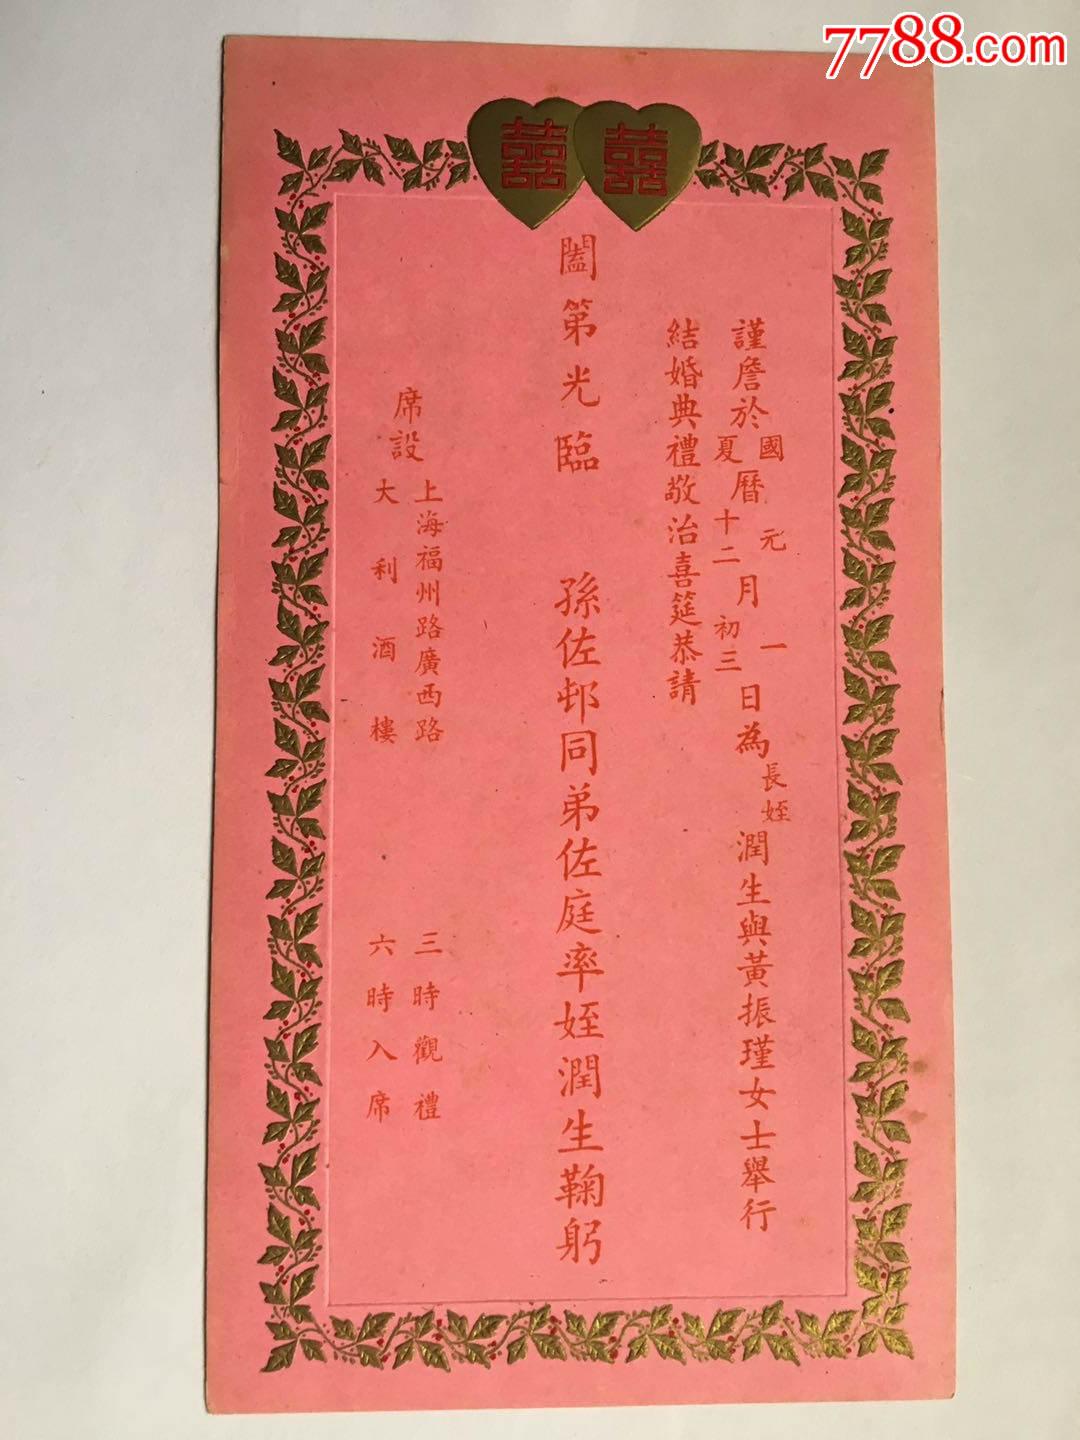 7788.com
囍 囍
謹詹於國夏曆元十二月一初三日為長姪潤生與黃振瑾女士舉行
結婚典禮敬治喜筵恭請
闔第光臨 孫佐邨同弟佐庭率姪潤生鞠躬
席設
上海福州路廣西路
大利酒樓
三時觀禮
六時入席